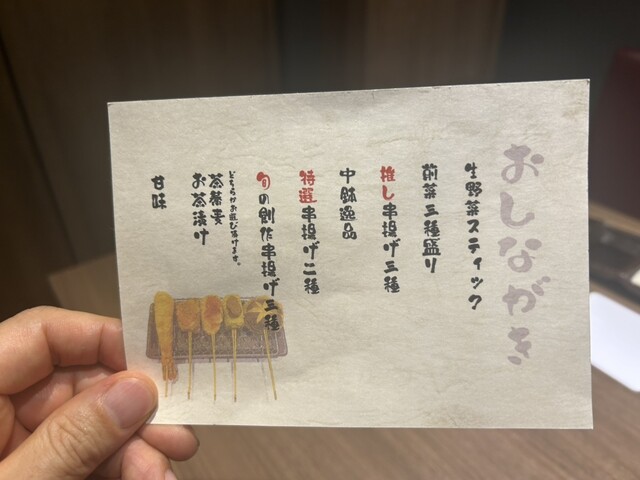 おしながき
生野菜スティック
前菜三種盛り
推し串揚げ三種
中鉢逸品
特選串揚げ二種
旬の創作串揚げ三種
どちらかお選び頂けます。
茶蕎麦
お茶漬け
甘味